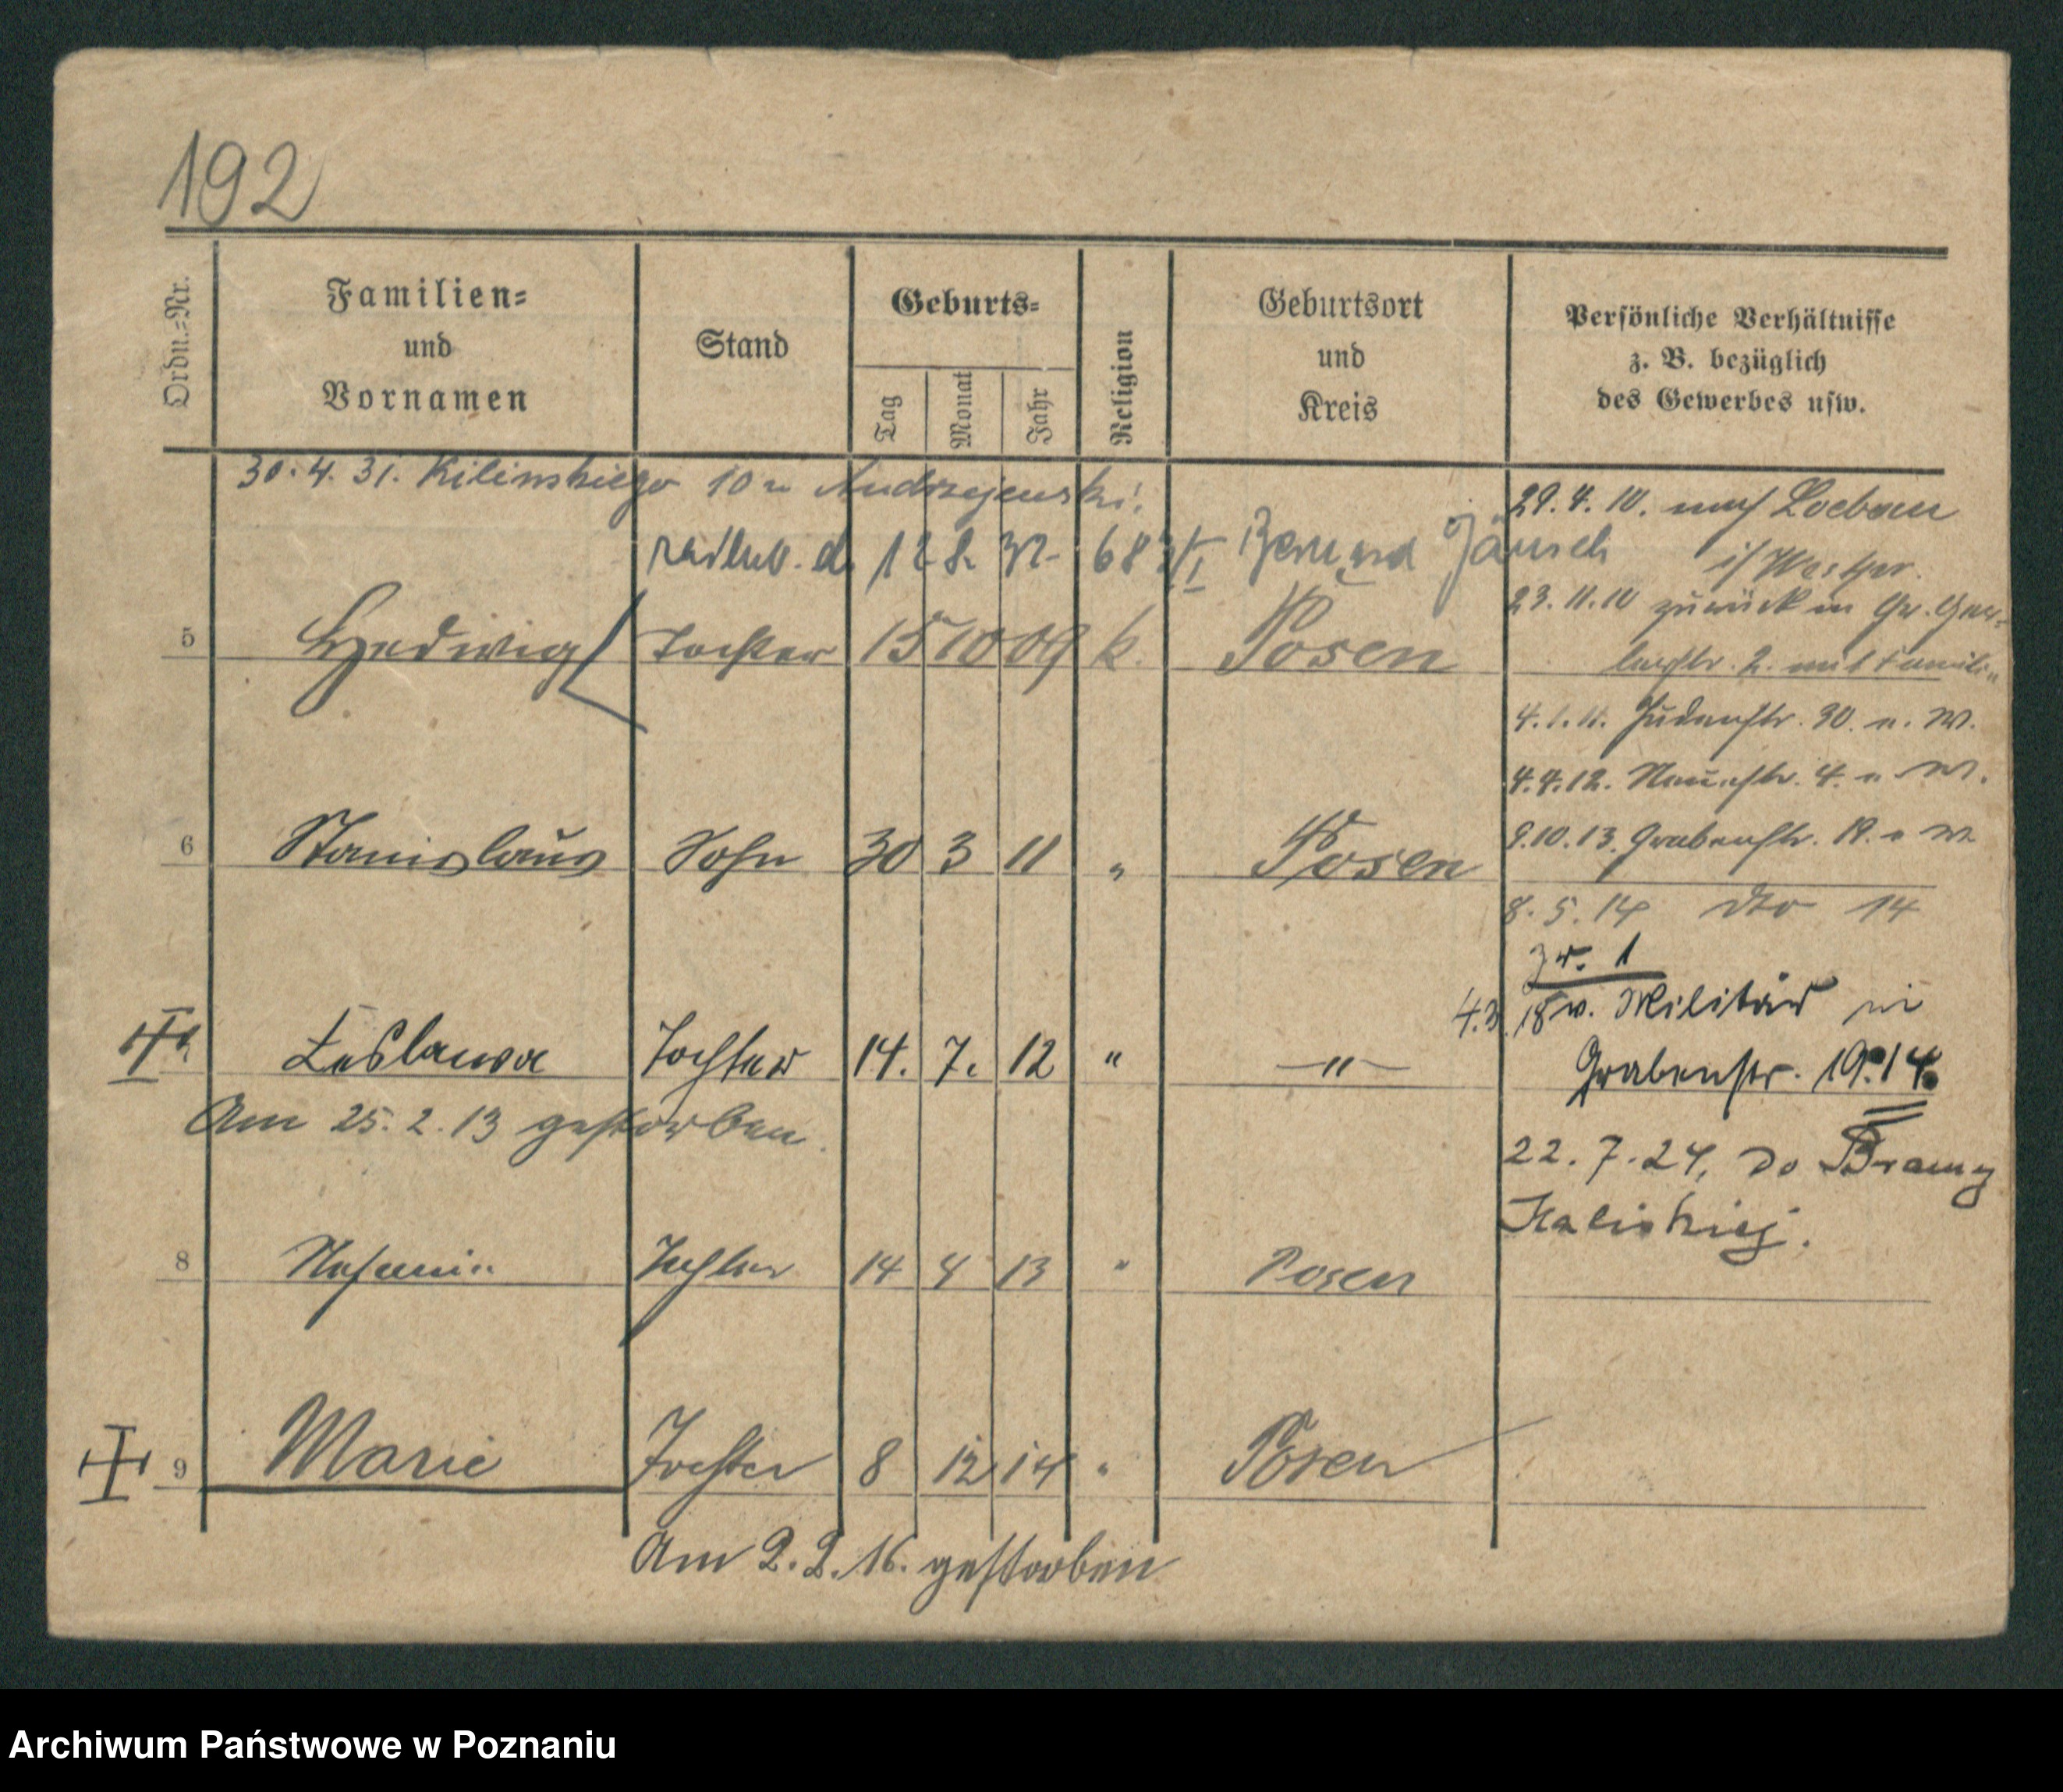 192
Ordn.=Nr.
Familien=
und
Vornamen
Stand
Geburts=
Tag
Monat
Jahr
Religion
Geburtsort
und
Kreis
Persönliche Verhältnisse
z. B. bezüglich
des Gewerbes usw.
30. 4. 31. Kilinskiego 10 u Andrzejewski.
Bernard Jänsch
29.4.10. nach Loebau
i/Westpr.
5 Hedwig Tochter 15 10 09 k. Posen
23.11.10 zurück in Gr. Ger=
berstr. 2. mit Familie
4.1.11. Judenstr. 30. u. W.
4.4.12. Neuestr. 4. u W.
6 Stanislaus Sohn 30 3 11 " Posen
9.10.13. Grabenstr. 19. u W
8. 5. 14 dto 14
Zr. 1
4.3.18 v. Militär in
Leslawa Tochter 14. 7. 12 " —"—
Grabenstr. 19.14.
Am 25. 2. 13 gestorben.
22. 7. 24, Do Bramy
Kaliskiej.
8 Stefania Tochter 14 4 13 " Posen
9 Marie Tochter 8 12 14 " Posen
Am 2. 2. 16. gestorben
Archiwum Państwowe w Poznaniu